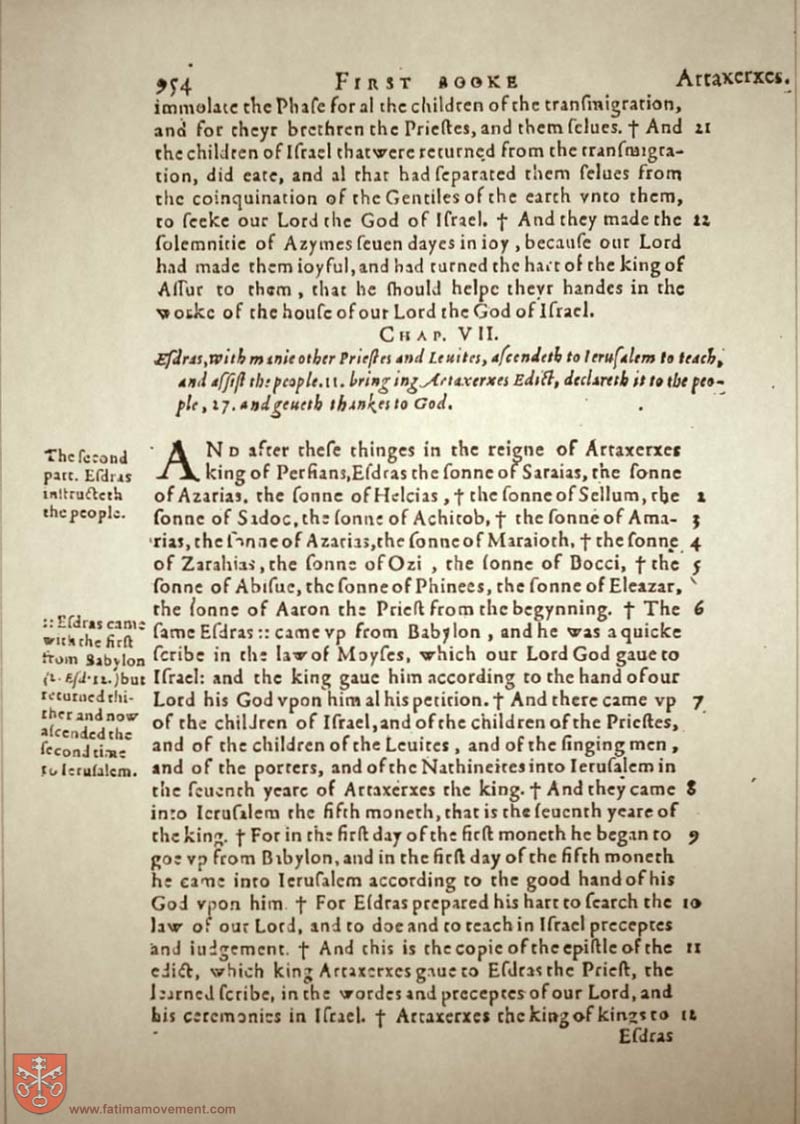 954 FIRST BOOKE Artaxerxes.
immolate the Phaſe for al the children of the tranſmigration,
and for theyr brethren the Prieſtes, and them ſelues. † And 21
the children of Iſrael that were returned from the tranſmigra-
tion, did eate, and al that had ſeparated them ſelues from
the coinquination of the Gentiles of the earth vnto them,
to ſeeke our Lord the God of Iſrael. † And they made the 22
ſolemnitie of Azymes ſeuen dayes in ioy, becauſe our Lord
had made them ioyful, and had turned the hart of the king of
Aſſur to them, that he ſhould helpe theyr handes in the
worke of the houſe of our Lord the God of Iſrael.
CHAP. VII.
Eſdras, with manie other Prieſtes and Leuites, aſcendeth to Ieruſalem to teach,
and aſſiſt the people. 11. bringing Artaxerxes Edict, declareth it to the peo-
ple, 27. and geueth thankes to God.
The ſecond
part. Eſdras
inſtructeth
the people.
AND after theſe thinges in the reigne of Artaxerxes
king of Perſians, Eſdras the ſonne of Saraias, the ſonne
of Azarias, the ſonne of Helcias, † the ſonne of Sellum, the 2
ſonne of Sadoc, the ſonne of Achitob, † the ſonne of Ama- 3
rias, the ſonne of Azarias, the ſonne of Maraioth, † the ſonne 4
of Zarahias, the ſonne of Ozi, the ſonne of Bocci, † the 5
ſonne of Abiſue, the ſonne of Phinees, the ſonne of Eleazar,
the ſonne of Aaron the Prieſt from the begynning. † The 6
:: Eſdras came
with the firſt
from Babylon
(1. Eſd. 12.) but
returned thi-
ther and now
aſcended the
ſecond time
to Ieruſalem.
ſame Eſdras :: came vp from Babylon, and he was a quicke
ſcribe in the law of Moyſes, which our Lord God gaue to
Iſrael: and the king gaue him according to the hand of our
Lord his God vpon him al his petition. † And there came vp 7
of the children of Iſrael, and of the children of the Prieſtes,
and of the children of the Leuites, and of the ſinging men,
and of the porters, and of the Nathineites into Ieruſalem in
the ſeuenth yeare of Artaxerxes the king. † And they came 8
into Ieruſalem the fifth moneth, that is the ſeuenth yeare of
the king. † For in the firſt day of the firſt moneth he began to 9
goe vp from Babylon, and in the firſt day of the fifth moneth
he came into Ieruſalem according to the good hand of his
God vpon him. † For Eſdras prepared his hart to ſearch the 10
law of our Lord, and to doe and to teach in Iſrael preceptes
and iudgement. † And this is the copie of the epiſtle of the 11
edict, which king Artaxerxes gaue to Eſdras the Prieſt, the
learned ſcribe, in the wordes and preceptes of our Lord, and
his ceremonies in Iſrael. † Artaxerxes the king of kings to 12
Eſdras
www.fatimamovement.com